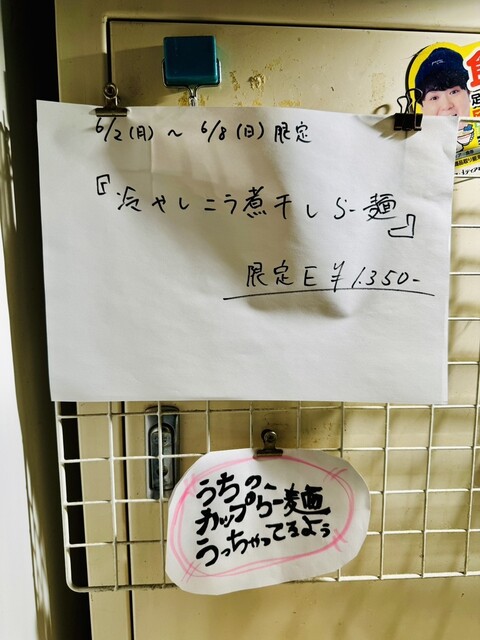 6/2(月)~6/8(日)限定
『冷やしニラ煮干しらー麺』
限定E ¥1.350-
うちの、
カップらー麺
うっちゃってるよぅ